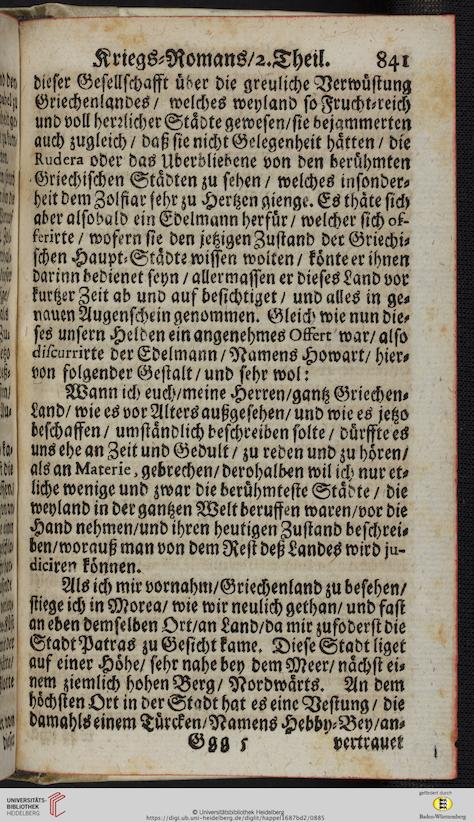 Kriegs-Romans/2.Theil. 841
dieser Gesellschafft über die greuliche Verwüstung
Griechenlandes / welches weyland so Frucht-reich
und voll herrlicher Städte gewesen/sie bejammerten
auch zugleich / daß sie nicht Gelegenheit hätten / die
Rudera oder das Uberbliebene von den berühmten
Griechischen Städten zu sehen / welches insonder-
heit dem Zolfiar sehr zu Hertzen gienge. Es thäte sich
aber alsobald ein Edelmann herfür / welcher sich of-
ferirte / wofern sie den jetzigen Zustand der Griechi-
schen Haupt-Städte wissen wolten / könte er ihnen
darinn bedienet seyn / allermassen er dieses Land vor
kurtzer Zeit ab und auf besichtiget / und alles in ge-
nauen Augenschein genommen. Gleich wie nun die-
ses unsern Helden ein angenehmes Offert war/ also
discurrirte der Edelmann / Namens Howart / hier-
von folgender Gestalt / und sehr wol:
Wann ich euch/meine Herren/gantz Griechen-
Land/ wie es vor Alters außgesehen/ und wie es jetzo
beschaffen / umständlich beschreiben solte / dürffte es
uns ehe an Zeit und Gedult / zu reden und zu hören/
als an Materie, gebrechen/ derohalben wil ich nur et-
liche wenige und zwar die berühmteste Städte / die
weyland in der gantzen Welt beruffen waren/vor die
Hand nehmen/und ihren heutigen Zustand beschrei-
ben/worauß man von dem Rest deß Landes wird ju-
diciren können.
Als ich mir vornahm/Griechenland zu besehen/
stiege ich in Morea/ wie wir neulich gethan/ und fast
an eben demselben Ort/an Land/da mir zufoderst die
Stadt Patras zu Gesicht kame. Diese Stadt liget
auf einer Höhe/ sehr nahe bey dem Meer/ nächst ei-
nem ziemlich hohen Berg/ Nordwärts. An dem
höchsten Ort in der Stadt hat es eine Vestung / die
damahls einem Türcken/Namens Hebby-Bey/an-
Ggg 5 vertrauet
UNIVERSITÄTS-
BIBLIOTHEK
HEIDELBERG
© Universitätsbibliothek Heidelberg
https://digi.ub.uni-heidelberg.de/diglit/happel1687bd2/0885
gefördert durch
Baden-Württemberg